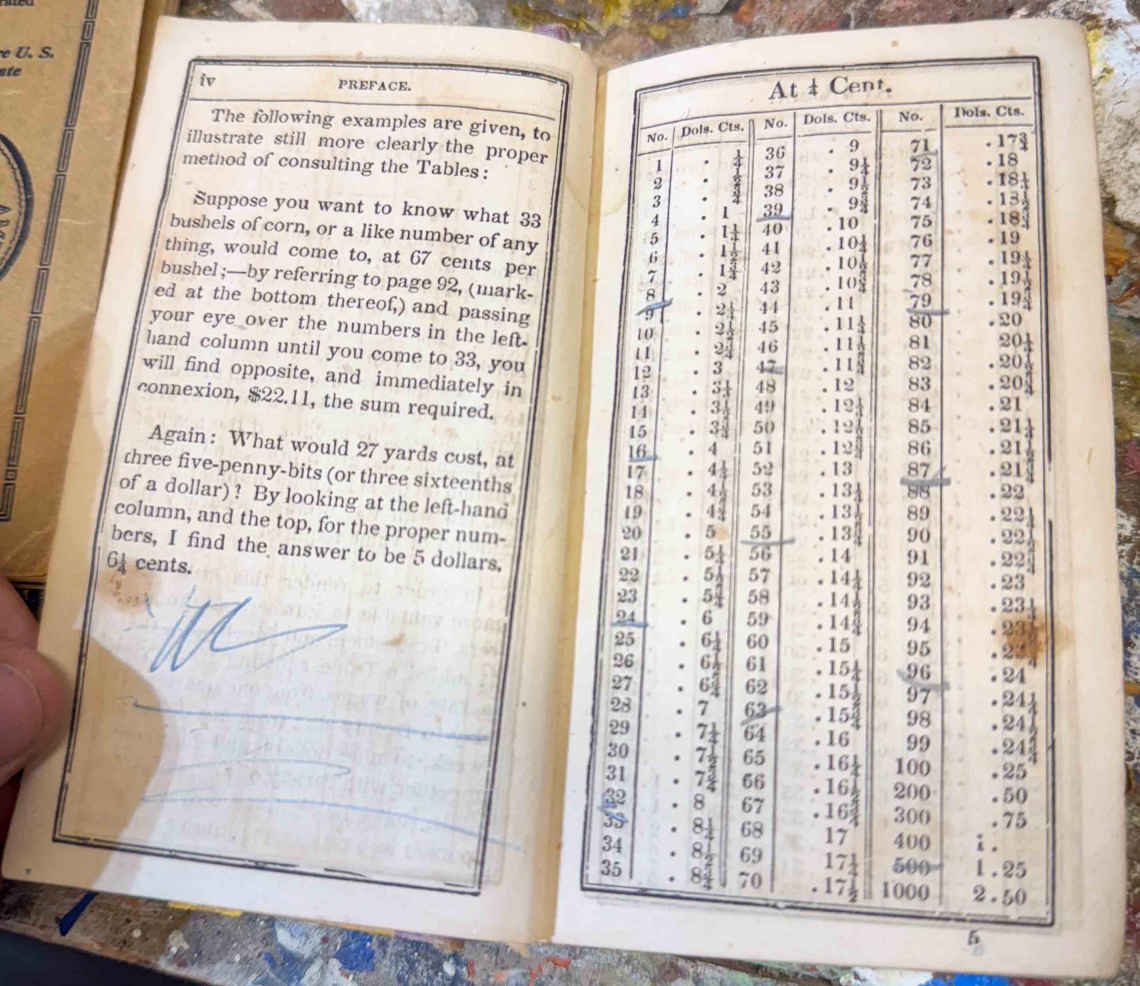 U. S.
iv PREFACE.
The following examples are given, to
illustrate still more clearly the proper
method of consulting the Tables:
Suppose you want to know what 33
bushels of corn, or a like number of any
thing, would come to, at 67 cents per
bushel;—by referring to page 92, (mark-
ed at the bottom thereof,) and passing
your eye over the numbers in the left-
hand column until you come to 33, you
will find opposite, and immediately in
connexion, $22.11, the sum required.
Again: What would 27 yards cost, at
three five-penny-bits (or three sixteenths
of a dollar)? By looking at the left-hand
column, and the top, for the proper num-
bers, I find the answer to be 5 dollars,
6¼ cents.
At ¼ Cent.
No. Dols. Cts. No. Dols. Cts. No. Dols. Cts.
1 . ¼ 36 . 9 71 .17¾
2 . ½ 37 . 9¼ 72 .18
3 . ¾ 38 . 9½ 73 .18¼
4 . 1 39 . 9¾ 74 .18½
5 . 1¼ 40 .10 75 .18¾
6 . 1½ 41 .10¼ 76 .19
7 . 1¾ 42 .10½ 77 .19¼
8 . 2 43 .10¾ 78 .19½
9 . 2¼ 44 .11 79 .19¾
10 . 2½ 45 .11¼ 80 .20
11 . 2¾ 46 .11½ 81 .20¼
12 . 3 47 .11¾ 82 .20½
13 . 3¼ 48 .12 83 .20¾
14 . 3½ 49 .12¼ 84 .21
15 . 3¾ 50 .12½ 85 .21¼
16 . 4 51 .12¾ 86 .21½
17 . 4¼ 52 .13 87 .21¾
18 . 4½ 53 .13¼ 88 .22
19 . 4¾ 54 .13½ 89 .22¼
20 . 5 55 .13¾ 90 .22½
21 . 5¼ 56 .14 91 .22¾
22 . 5½ 57 .14¼ 92 .23
23 . 5¾ 58 .14½ 93 .23¼
24 . 6 59 .14¾ 94 .23½
25 . 6¼ 60 .15 95 .23¾
26 . 6½ 61 .15¼ 96 .24
27 . 6¾ 62 .15½ 97 .24¼
28 . 7 63 .15¾ 98 .24½
29 . 7¼ 64 .16 99 .24¾
30 . 7½ 65 .16¼ 100 .25
31 . 7¾ 66 .16½ 200 .50
32 . 8 67 .16¾ 300 .75
33 . 8¼ 68 17 400 1.
34 . 8½ 69 17¼ 500 1.25
35 . 8¾ 70 .17½ 1000 2.50
5